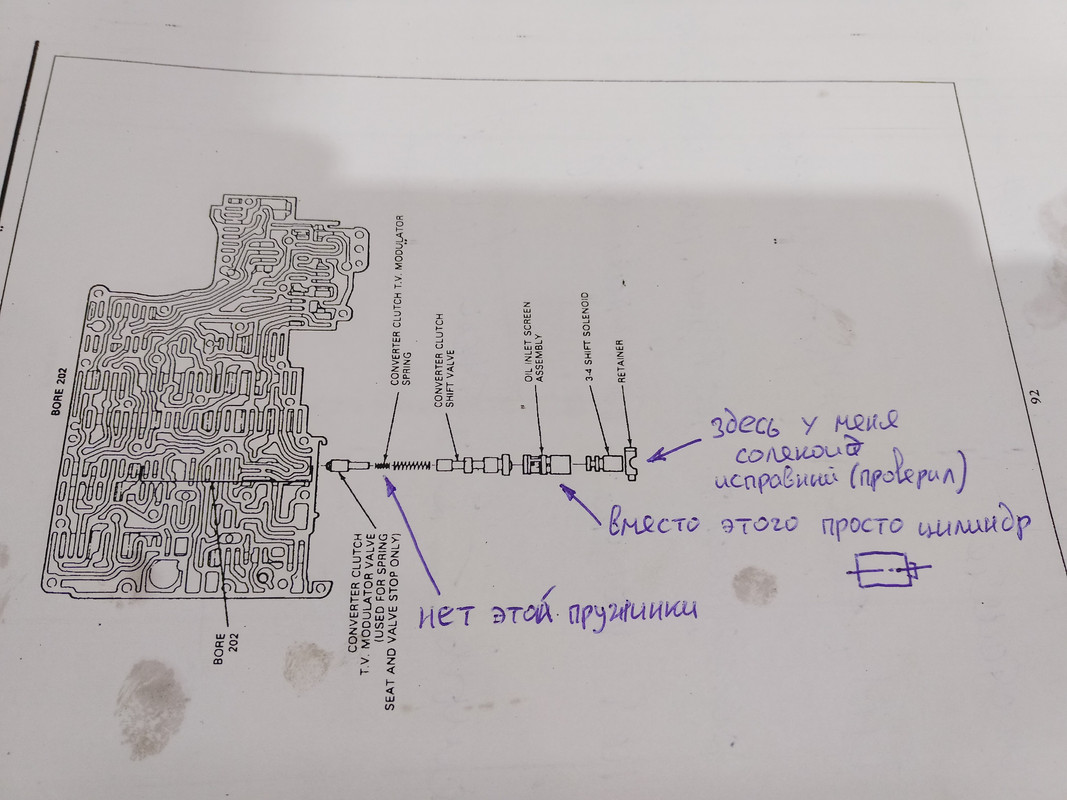 BORE 202
CONVERTER CLUTCH T.V. MODULATOR
SPRING
CONVERTER CLUTCH
SHIFT VALVE
OIL INLET SCREEN
ASSEMBLY
3-4 SHIFT SOLENOID
RETAINER
92
BORE
202
CONVERTER CLUTCH
T.V. MODULATOR VALVE
(USED FOR SPRING
SEAT AND VALVE STOP ONLY)
здесь у меня
соленоид
исправний (проверил)
вместо этого просто цилиндр
нет этой пружинки